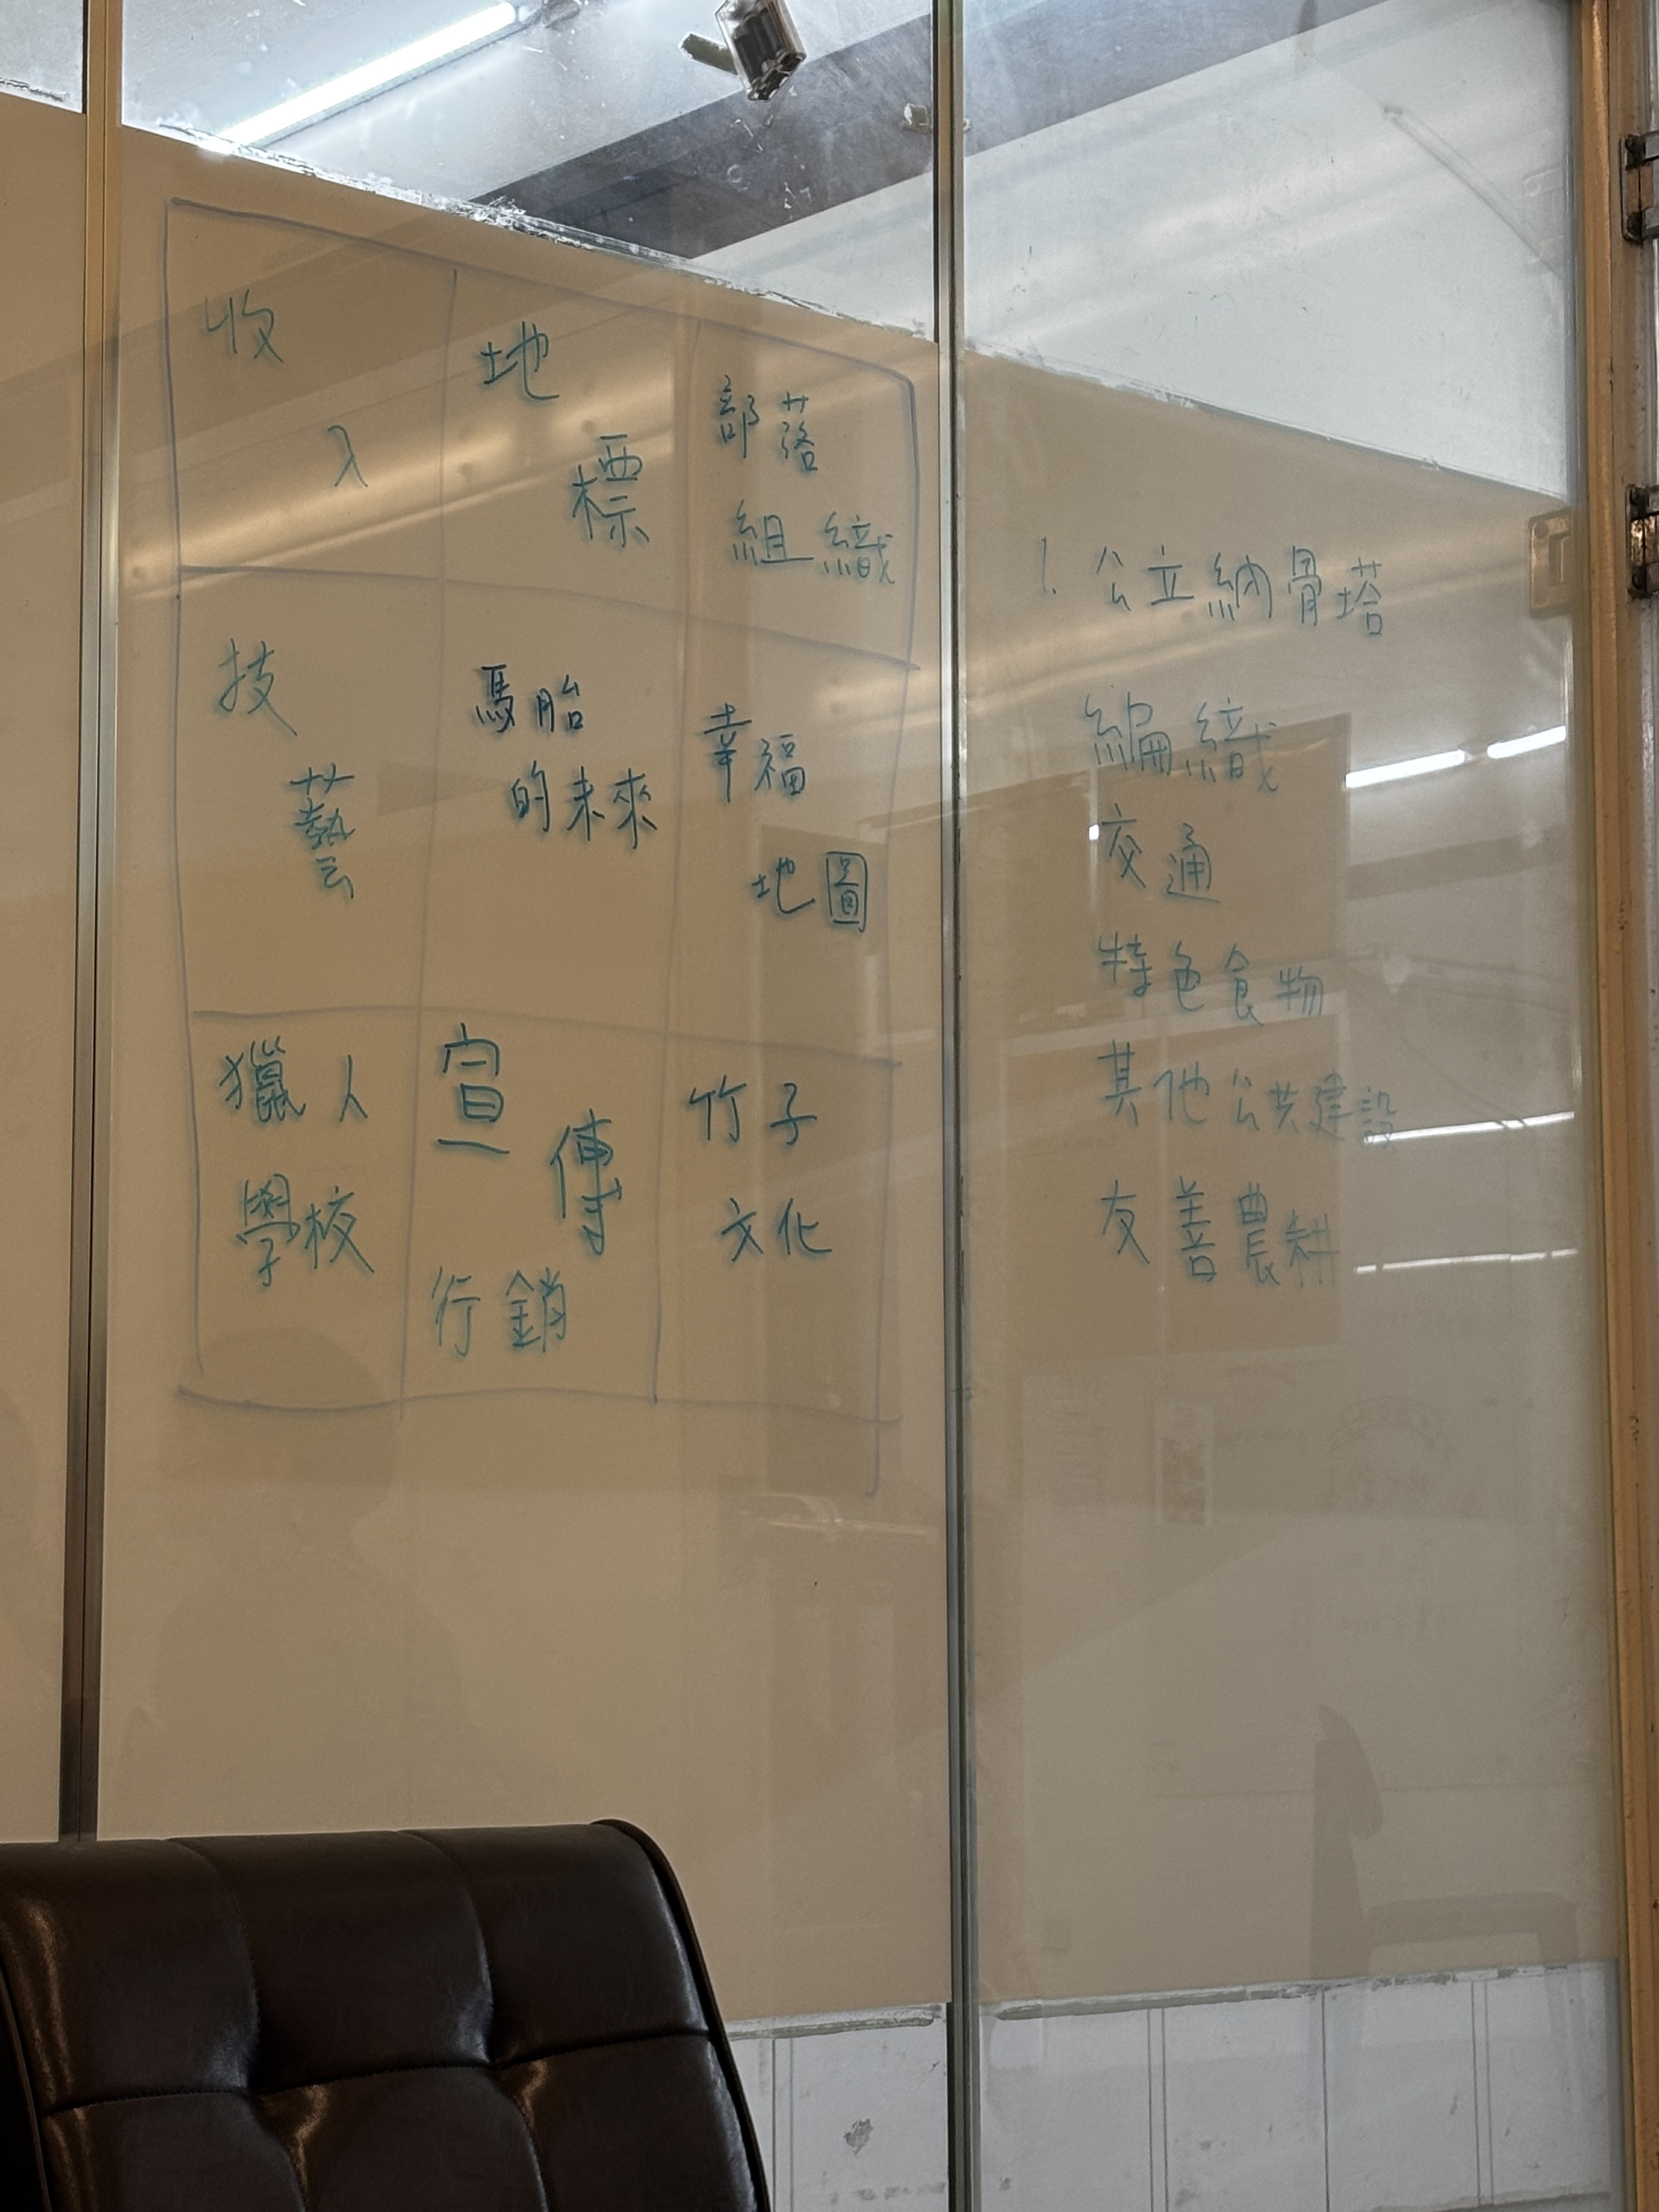 收入
地標
部落
組織
技藝
馬胎
的未來
幸福
地圖
獵人
學校
宣傳
行銷
竹子
文化
1. 公立納骨塔
編織
交通
特色食物
其他公共建設
友善農耕